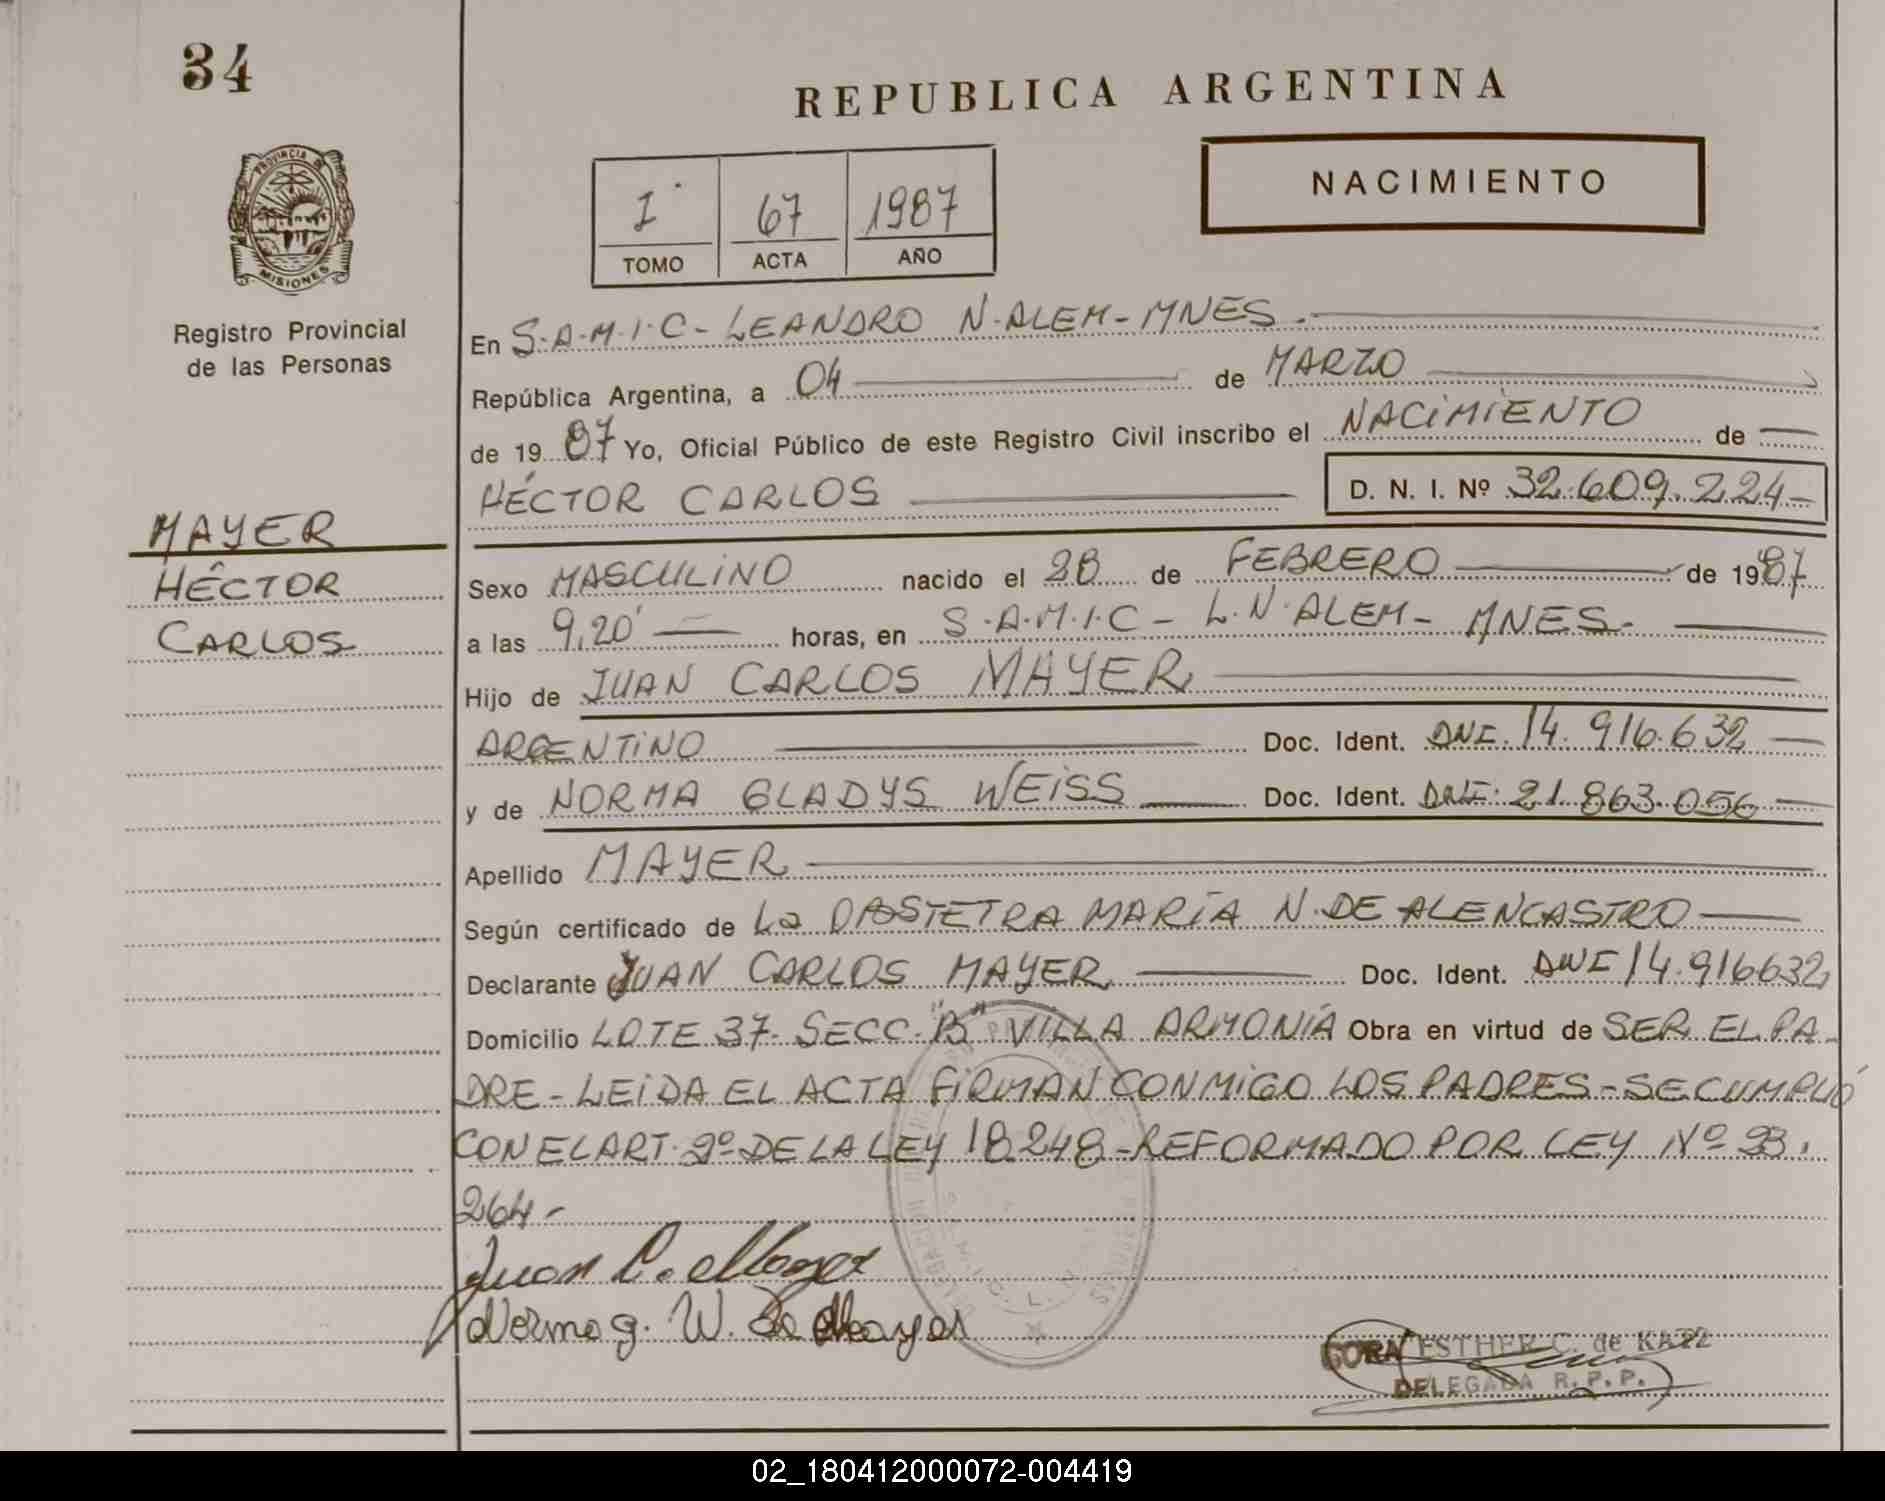 34
REPUBLICA ARGENTINA
NACIMIENTO
PROVINCIA DE
MISIONES
Registro Provincial
de las Personas
I 67 1987
TOMO ACTA AÑO
En S.A.M.I.C - LEANDRO N. ALEM - MNES.
República Argentina, a 04 de MARZO
de 1987 Yo, Oficial Público de este Registro Civil inscribo el NACIMIENTO de
HÉCTOR CARLOS D. N. I. Nº 32.609.224-
MAYER
HÉCTOR
CARLOS
Sexo MASCULINO nacido el 28 de FEBRERO de 1987
a las 9,20' horas, en S.A.M.I.C - L.N. ALEM - MNES.
Hijo de JUAN CARLOS MAYER
ARGENTINO Doc. Ident. DNI. 14.916.632
y de NORMA GLADYS WEISS Doc. Ident. DNI. 21.863.056
Apellido MAYER
Según certificado de La OBSTETRA MARÍA N. DE ALENCASTRO
Declarante JUAN CARLOS MAYER Doc. Ident. DNI 14.916632
Domicilio LOTE 37- SECC. "B" VILLA ARMONÍA Obra en virtud de SER EL PA-
DRE - LEIDA EL ACTA FIRMAN CONMIGO LOS PADRES - SE CUMPLIÓ
CON EL ART. 2º DE LA LEY 18248 - REFORMADO POR LEY Nº 23.
264-
Juan C. Mayer
Norma g. W. de Mayer
GORA ESTHER C. de KATZ
DELEGADA R. P. P.
02_180412000072-004419